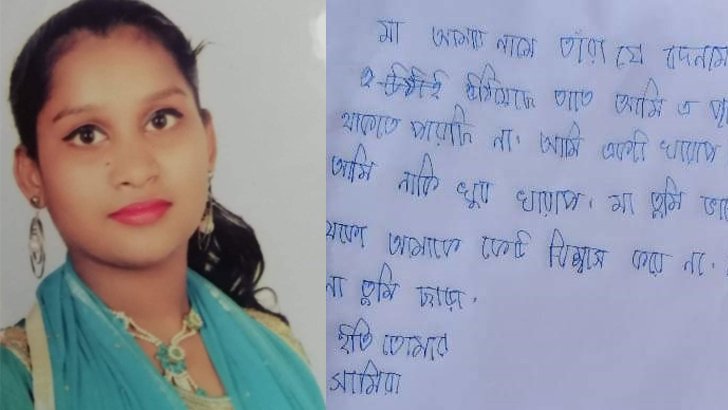 মা আমার নামে তাঁরা যে বদনাম
তাতে আমি এ
থাকতে পারছি না। আমি একটা খারাপ
আমি নাকি খুব খারাপ। মা তুমি
থেকো আমাকে কেউ বিশ্বাস করে না।
না তুমি ছাড়া।
ইতি তোমার
সামিরা